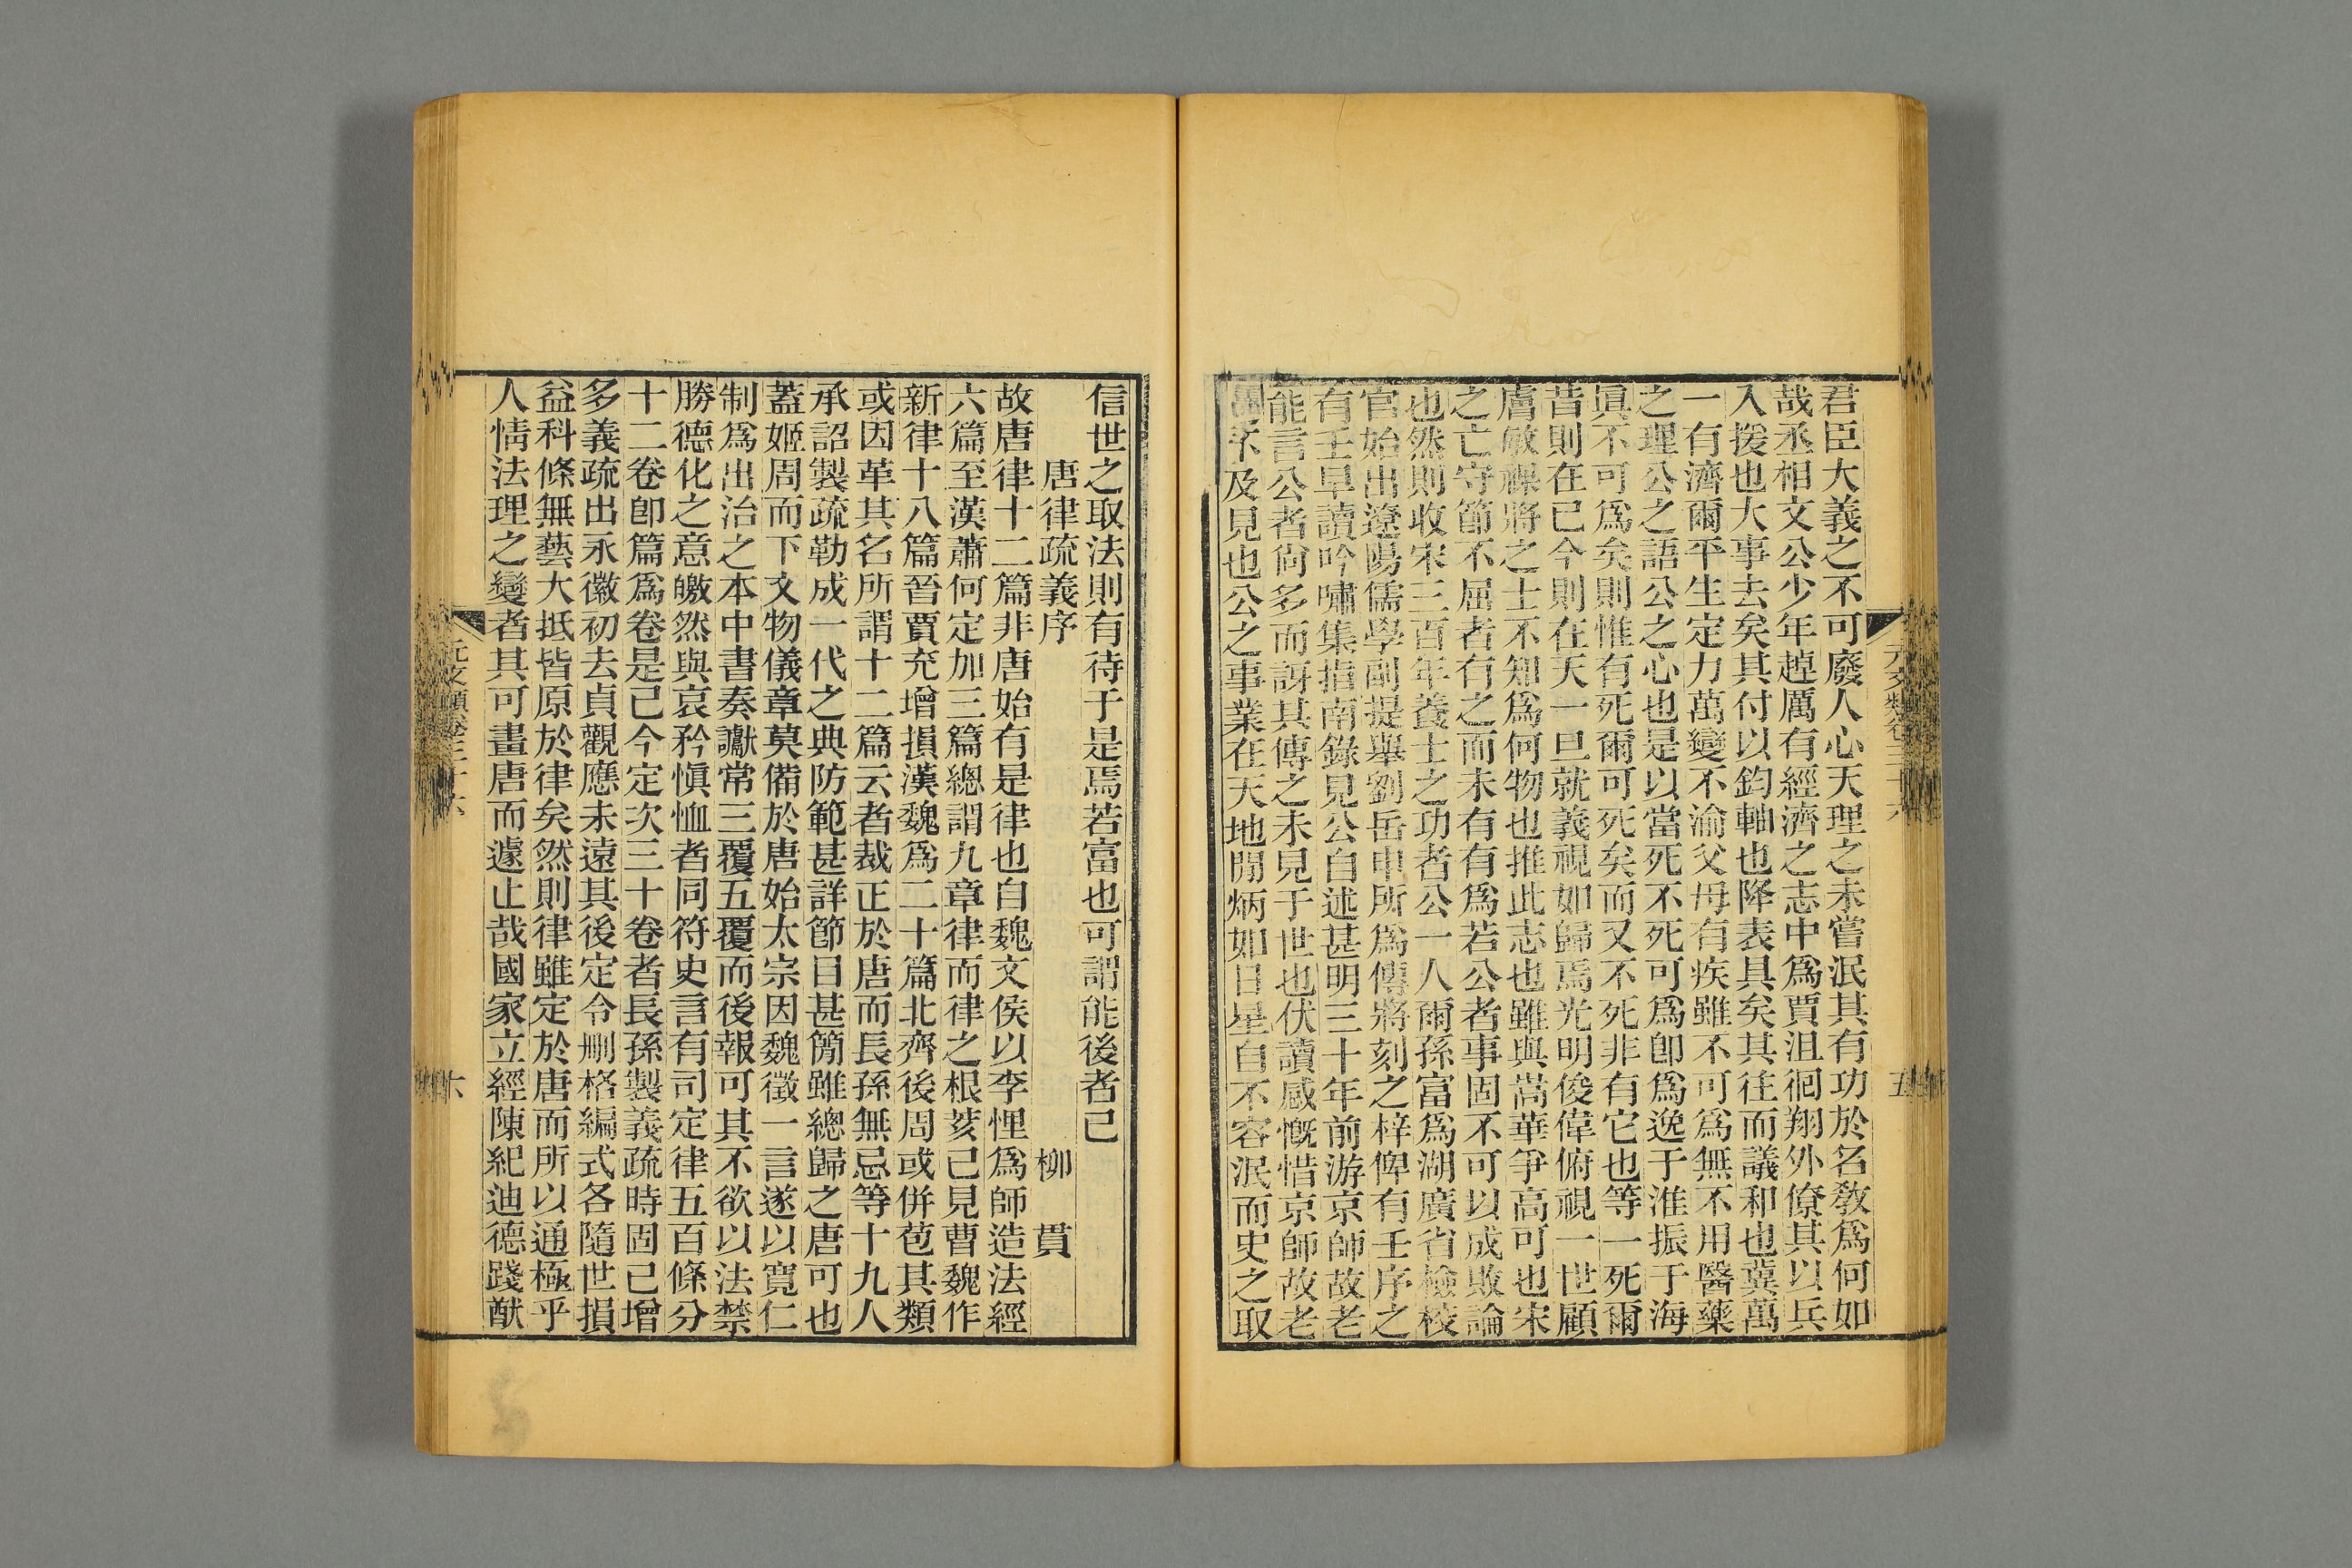 君臣大義之不可廢人心天理之未嘗泯其有功於名敎爲何如
哉丞相文公少年趠厲有經濟之志中爲賈沮徊翔外僚其以兵
入援也大事去矣其付以鈞軸也降表具矣其往而議和也冀萬
一有濟爾平生定力萬變不渝父母有疾雖不可爲無不用醫藥
之理公之語公之心也是以當死不死可爲卽爲逸于淮振于海
眞不可爲矣則惟有死爾可死矣而又不死非有它也等一死爾
昔則在已今則在天一旦就義視如歸焉光明俊偉俯視一世顧
膚敏祼將之士不知爲何物也推此志也雖與嵩華爭高可也宋
之亡守節不屈者有之而未有有爲若公者事固不可以成敗論
也然則收宋三百年養士之功者公一人爾孫富爲湖廣省檢校
官始出遼陽儒學副提舉劉岳申所爲傳將刻之梓俾有壬序之
有壬早讀吟嘯集指南錄見公自述甚明三十年前游京師故老
能言公者尙多而訝其傳之未見于世也伏讀感慨惜京師故老
不及見也公之事業在天地間炳如日星自不容泯而史之取
信世之取法則有待于是焉若富也可謂能後者已
唐律疏義序　柳　貫
故唐律十二篇非唐始有是律也自魏文侯以李悝爲師造法經
六篇至漢蕭何定加三篇總謂九章律而律之根荄已見曹魏作
新律十八篇晉賈充增損漢魏爲二十篇北齊後周或併苞其類
或因革其名所謂十二篇云者裁正於唐而長孫無忌等十九人
承詔製疏勒成一代之典防範甚詳節目甚簡雖總歸之唐可也
蓋姬周而下文物儀章莫備於唐始太宗因魏徵一言遂以寬仁
制爲出治之本中書奏讞常三覆五覆而後報可其不欲以法禁
勝德化之意皦然與哀矜愼恤者同符史言有司定律五百條分
十二卷卽篇爲卷是已今定次三十卷者長孫製義疏時固已增
多義疏出永徽初去貞觀應未遠其後定令刪格編式各隨世損
益科條無藝大抵皆原於律矣然則律雖定於唐而所以通極乎
人情法理之變者其可畫唐而遽止哉國家立經陳紀迪德踐猷
元文類卷三十六
六